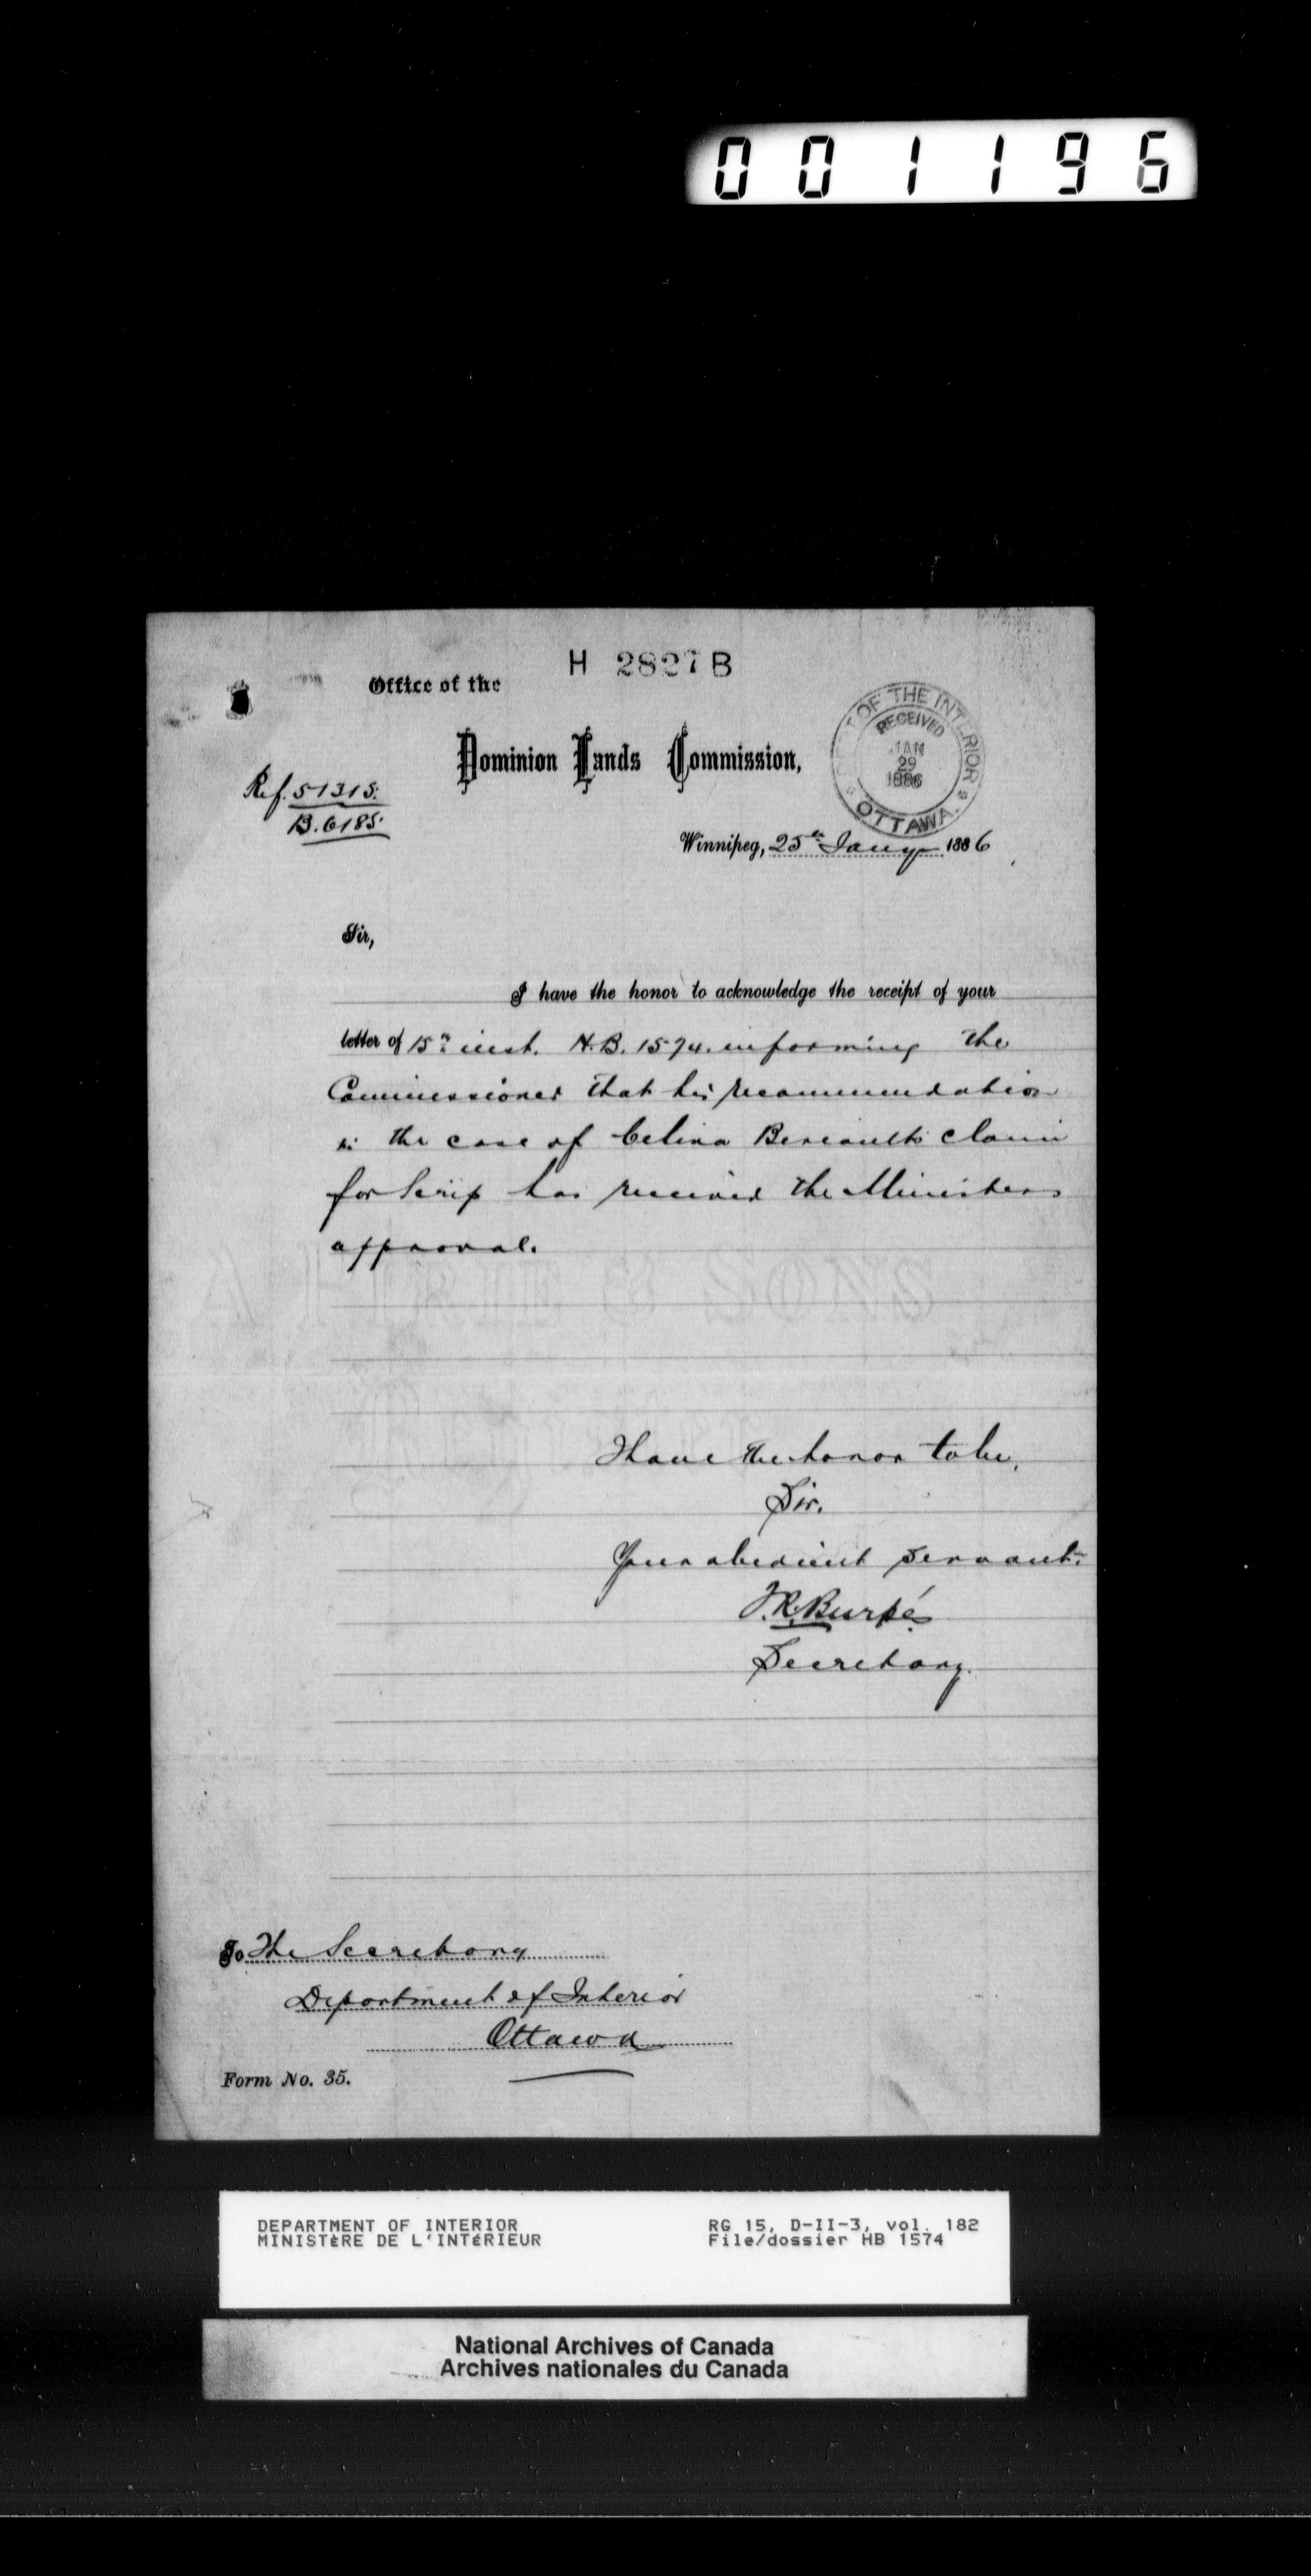 001196
H 2827 B
Office of the
Dominion Lands Commission,
DEPT OF THE INTERIOR
RECEIVED
JAN
29
1886
OTTAWA.
Ref. 51315.
B. 6185
Winnipeg, 25th Jany 1886
Sir,
I have the honor to acknowledge the receipt of your
letter of 15th inst. H.B. 1574. informing the
Commissioner that his recommendation
in the case of Celina Bereault's claim
for Scrip has received the Ministers
approval.
I have the honor to be,
Sir.
Your obedient Servant.
Burpé
Secretary.
To The Secretary
Department of Interior
Ottawa
Form No. 35.
DEPARTMENT OF INTERIOR
MINISTÈRE DE L'INTÉRIEUR
RG 15, D-II-3, vol. 182
File/dossier HB 1574
National Archives of Canada
Archives nationales du Canada